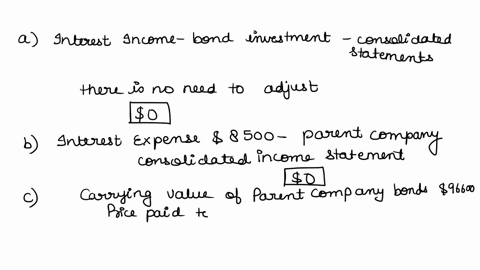 a) Interest Income - bond investment - consolidated
statements
there is no need to adjust
$0
b) Interest Expense $8500 - parent company
consolidated income statement
$0
c) Carrying value of Parent company bonds $96600
Price paid t